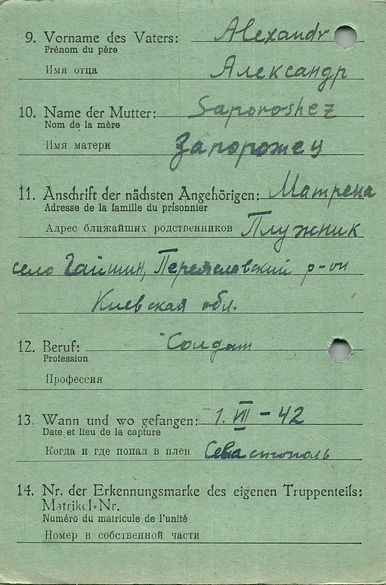 9. Vorname des Vaters: Alexandr
Prénom du père
Имя отца Александр
10. Name der Mutter: Saporoshez
Nom de la mère
Имя матери Запорожец
11. Anschrift der nächsten Angehörigen: Матрена
Adresse de la famille du prisonnier
Адрес ближайших родственников Плужник
село Гайшин, Переяславский р-он
Киевская обл.
12. Beruf: Солдат
Profession
Профессия
13. Wann und wo gefangen: 1. VII - 42
Date et lieu de la capture
Когда и где попал в плен Севастополь
14. Nr. der Erkennungsmarke des eigenen Truppenteils:
Matrikel-Nr.
Numéro du matricule de l'unité
Номер в собственной части